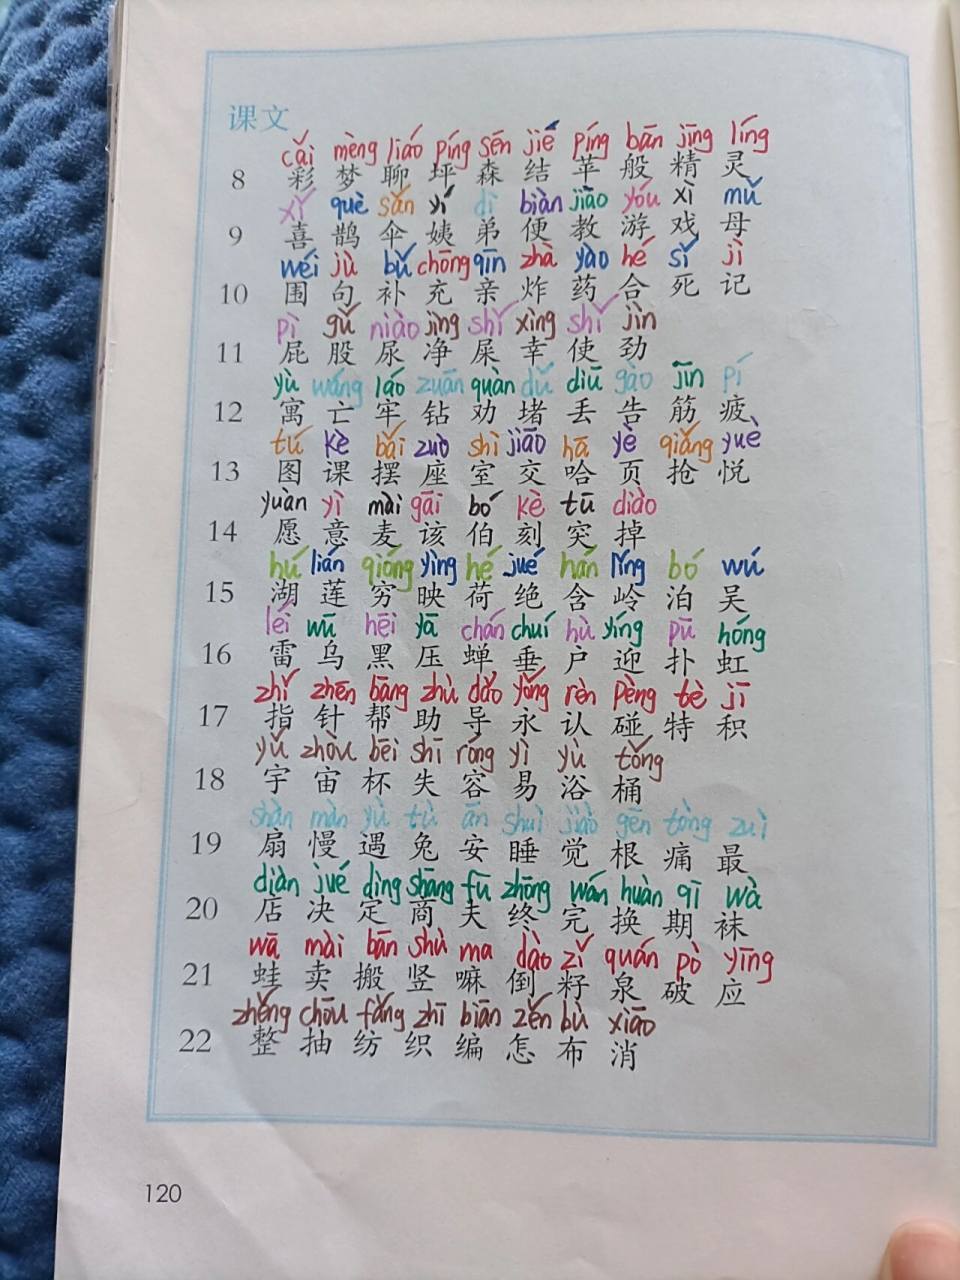 课文
cǎi mèng liáo píng sēn jié píng bān jīng líng
8 彩 梦 聊 坪 森 结 苹 般 精 灵
xǐ què sǎn yí dì biàn jiào yóu xì mǔ
9 喜 鹊 伞 姨 弟 便 教 游 戏 母
wéi jù bǔ chōng qīn zhà yào hé sǐ jì
10 围 句 补 充 亲 炸 药 合 死 记
pì gǔ niào jìng shǐ xìng shǐ jìn
11 屁 股 尿 净 屎 幸 使 劲
yù wáng láo zuān quàn dǔ diū gào jīn pí
12 寓 亡 牢 钻 劝 堵 丢 告 筋 疲
tú kè bǎi zuò shì jiāo hā yè qiǎng yuè
13 图 课 摆 座 室 交 哈 页 抢 悦
yuàn yì mài gāi bó kè tū diào
14 愿 意 麦 该 伯 刻 突 掉
hú lián qióng yìng hé jué hán lǐng bó wú
15 湖 莲 穷 映 荷 绝 含 岭 泊 吴
léi wū hēi yā chán chuí hù yíng pū hóng
16 雷 乌 黑 压 蝉 垂 户 迎 扑 虹
zhǐ zhēn bāng zhù dǎo yǒng rèn pèng tè jī
17 指 针 帮 助 导 永 认 碰 特 积
yǔ zhòu bēi shī róng yì yù tǒng
18 宇 宙 杯 失 容 易 浴 桶
shàn màn yù tù ān shuì jiào gēn tòng zuì
19 扇 慢 遇 兔 安 睡 觉 根 痛 最
diàn jué dìng shāng fū zhōng wán huàn qī wà
20 店 决 定 商 夫 终 完 换 期 袜
wā mài bān shù ma dào zǐ quán pò yīng
21 蛙 卖 搬 竖 嘛 倒 籽 泉 破 应
zhěng chōu fǎng zhī biān zěn bù xiāo
22 整 抽 纺 织 编 怎 布 消
120